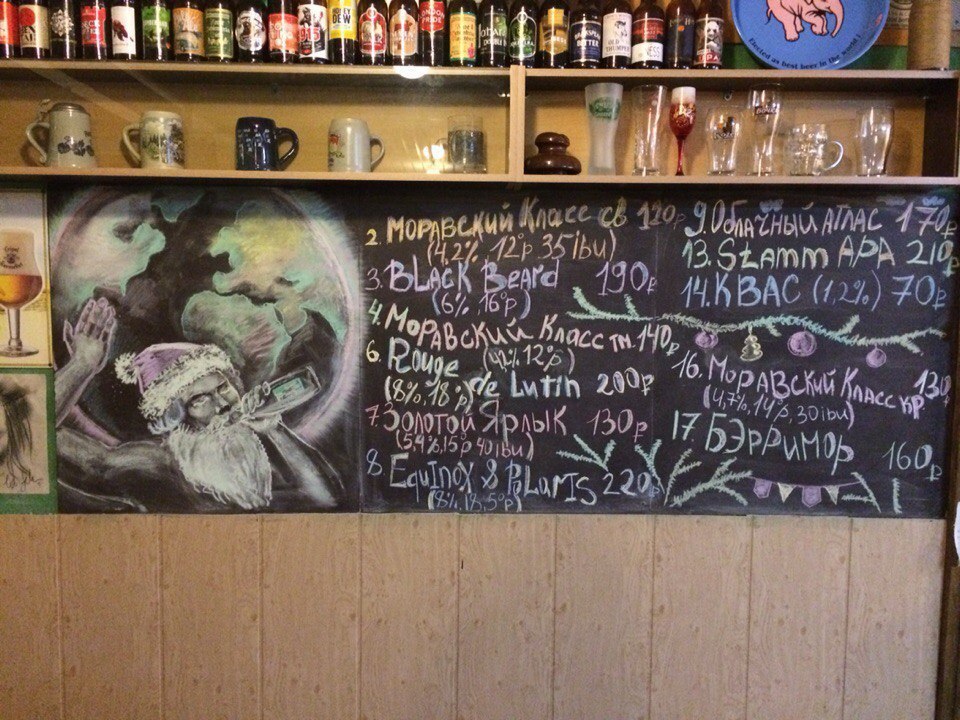 Elected as best beer in the world!
DEW
PRIDE
BITTER
OLD
THUMPER
NESS
2. МОРАВСКИЙ Класс св 120р
(4,2% 12°р 35 ibu)
3. BLACK Beard 190р
(6% 16°р)
4. МОРАВСКИЙ Класс тн. 140р
(4,2% 12°р)
6. Rouge de Lutin 200р
(8% 18°р)
7. Золотой Ярлык 130р
(5,4% 15°р 40 ibu)
8. Equinox & Polaris 220р
(8% 18,5°р)
9. Облачный атлас 170р
13. Stamm APA 210р
14. КВАС (1,2%) 70р
16. МОРАВСКИЙ Класс кр 130
(4,7% 14°р, 30 ibu)
17. БЭРРИМОР 160р